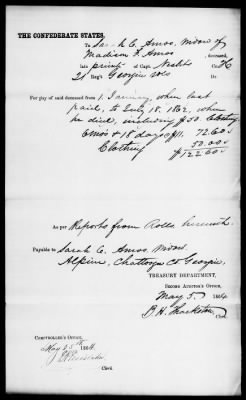 THE CONFEDERATE STATES,
To Sarah C. Amos, Widow of
Madison F. Amos, deceased,
late private of Capt. Co. H
21 Reg't Georgia vols Dr.
For pay of said deceased from 1 January, when last
paid, to July 18, 1862, when
he died, including $50 Clothing
6 mos & 18 days @ $11. 72.60
Clothing 50.00
$122.60
As per Reports from Rolls herewith.
Payable to Sarah C. Amos, Widow,
Alpine, Chattooga Co Georgia,
TREASURY DEPARTMENT,
SECOND AUDITOR'S OFFICE,
May 5, 1864
Clerk
COMPTROLLER'S OFFICE,
May 1864
Clerk.